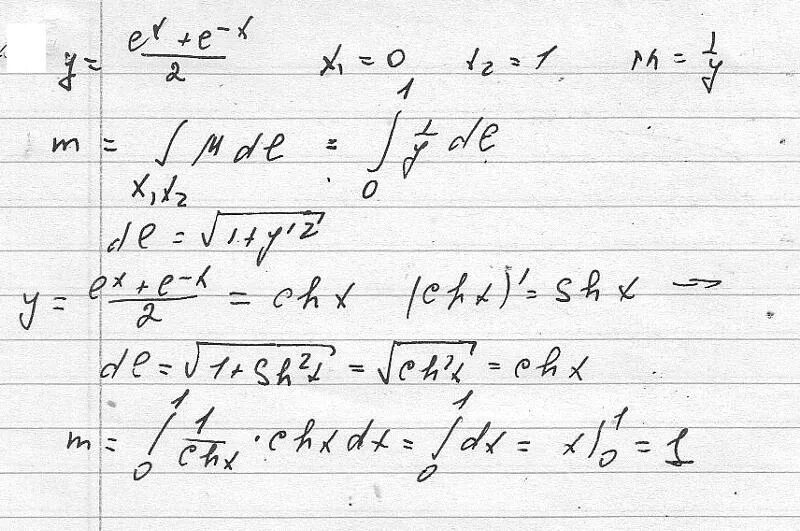 y = (e^x + e^-x)/2 x₁ = 0 x₂ = 1 μ = 1/y
m = ∫_{x₁x₂} μ dl = ∫_0^1 1/y dl
dl = √(1+y'²)
y = (e^x + e^-x)/2 = ch x (ch x)' = sh x →
dl = √(1+sh²x) = √(ch²x) = ch x
m = ∫_0^1 1/(ch x) · ch x dx = ∫_0^1 dx = x|_0^1 = 1